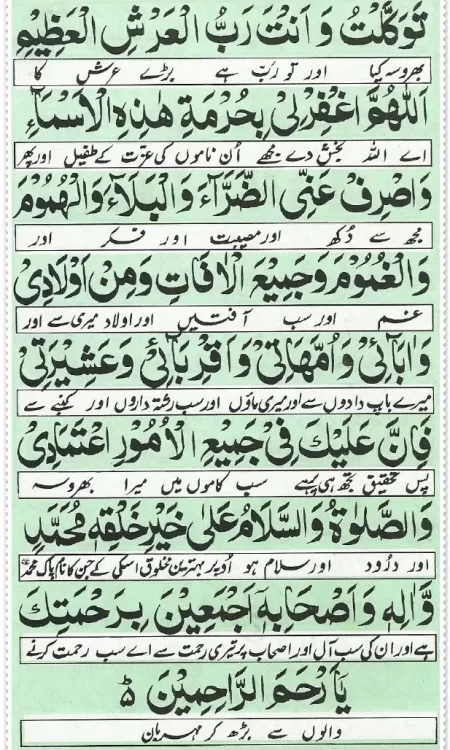 تَوَكَّلْتُ وَ اَنْتَ رَبُّ الْعَرْشِ الْعَظِيْمِ
بھروسہ کیا اور تو ربّ ہے بڑے عرش کا
اَللّٰهُمَّ اغْفِرْلِيْ بِحُرْمَةِ هٰذِهِ الْاَسْمَآءِ
اے اللہ بخش دے مجھے اُن ناموں کی عزّت کے طفیل اور پھیر
وَاصْرِفْ عَنِّي الضَّرَّآءَ وَالْبَلَآءَ وَالْهُمُوْمَ
مجھ سے دُکھ اور مصیبت اور فکر اور
وَالْغُمُوْمَ وَجَمِيْعَ الْاٰفَاتِ وَمِنْ اَوْلَادِيْ
غم اور سب آفتیں اور اولاد میری سے اور
وَاٰبَائِيْ وَاُمَّهَاتِيْ وَاَقْرِبَائِيْ وَعَشِيْرَتِيْ
میرے باپ دادوں سے اور میری ماؤں اور سب رشتہ داروں اور کنبے سے
فَاِنَّ عَلَيْكَ فِيْ جَمِيْعِ الْاُمُوْرِ اعْتِمَادِيْ
پس تحقیق تجھ ہی پہ ہے سب کاموں میں میرا بھروسہ
وَالصَّلٰوةُ وَالسَّلَامُ عَلٰى خَيْرِ خَلْقِهٖ مُحَمَّدٍ
اور درُود اور سلام ہو اُوپر بہترین مخلوق اسکی کے جن کا نام پاک محمدؐ
وَّاٰلِهٖ وَاَصْحَابِهٖ اَجْمَعِيْنَ بِرَحْمَتِكَ
ہے اور ان کی سب آل اور اصحاب پر تیری رحمت سے اے سب رحمت کرنے
يَآ اَرْحَمَ الرَّاحِمِيْنَ ۝
والوں سے بڑھ کر مہربان